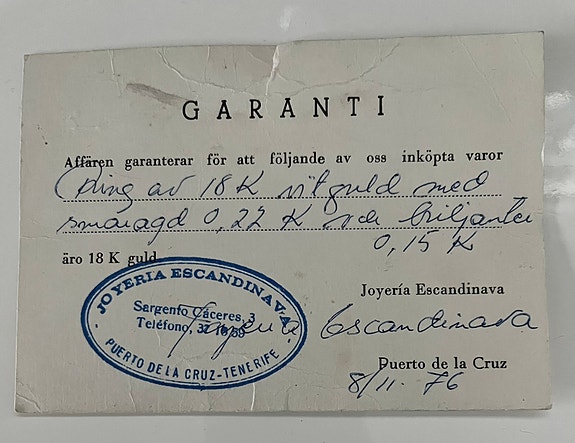 GARANTI
Affären garanterar för att följande av oss inköpta varor
Ring av 18 K vitguld med
smaragd 0,22 K och briljanter
0,15 K
äro 18 K guld.
JOYERIA ESCANDINAVA
Sargento Cáceres, 3
Teléfono, 37
PUERTO DE LA CRUZ-TENERIFE
Joyería Escandinava
Joyeria Escandinava
Puerto de la Cruz
8/11. 76